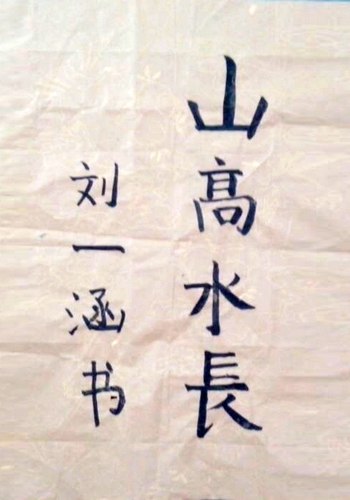 山髙水長
刘一涵书